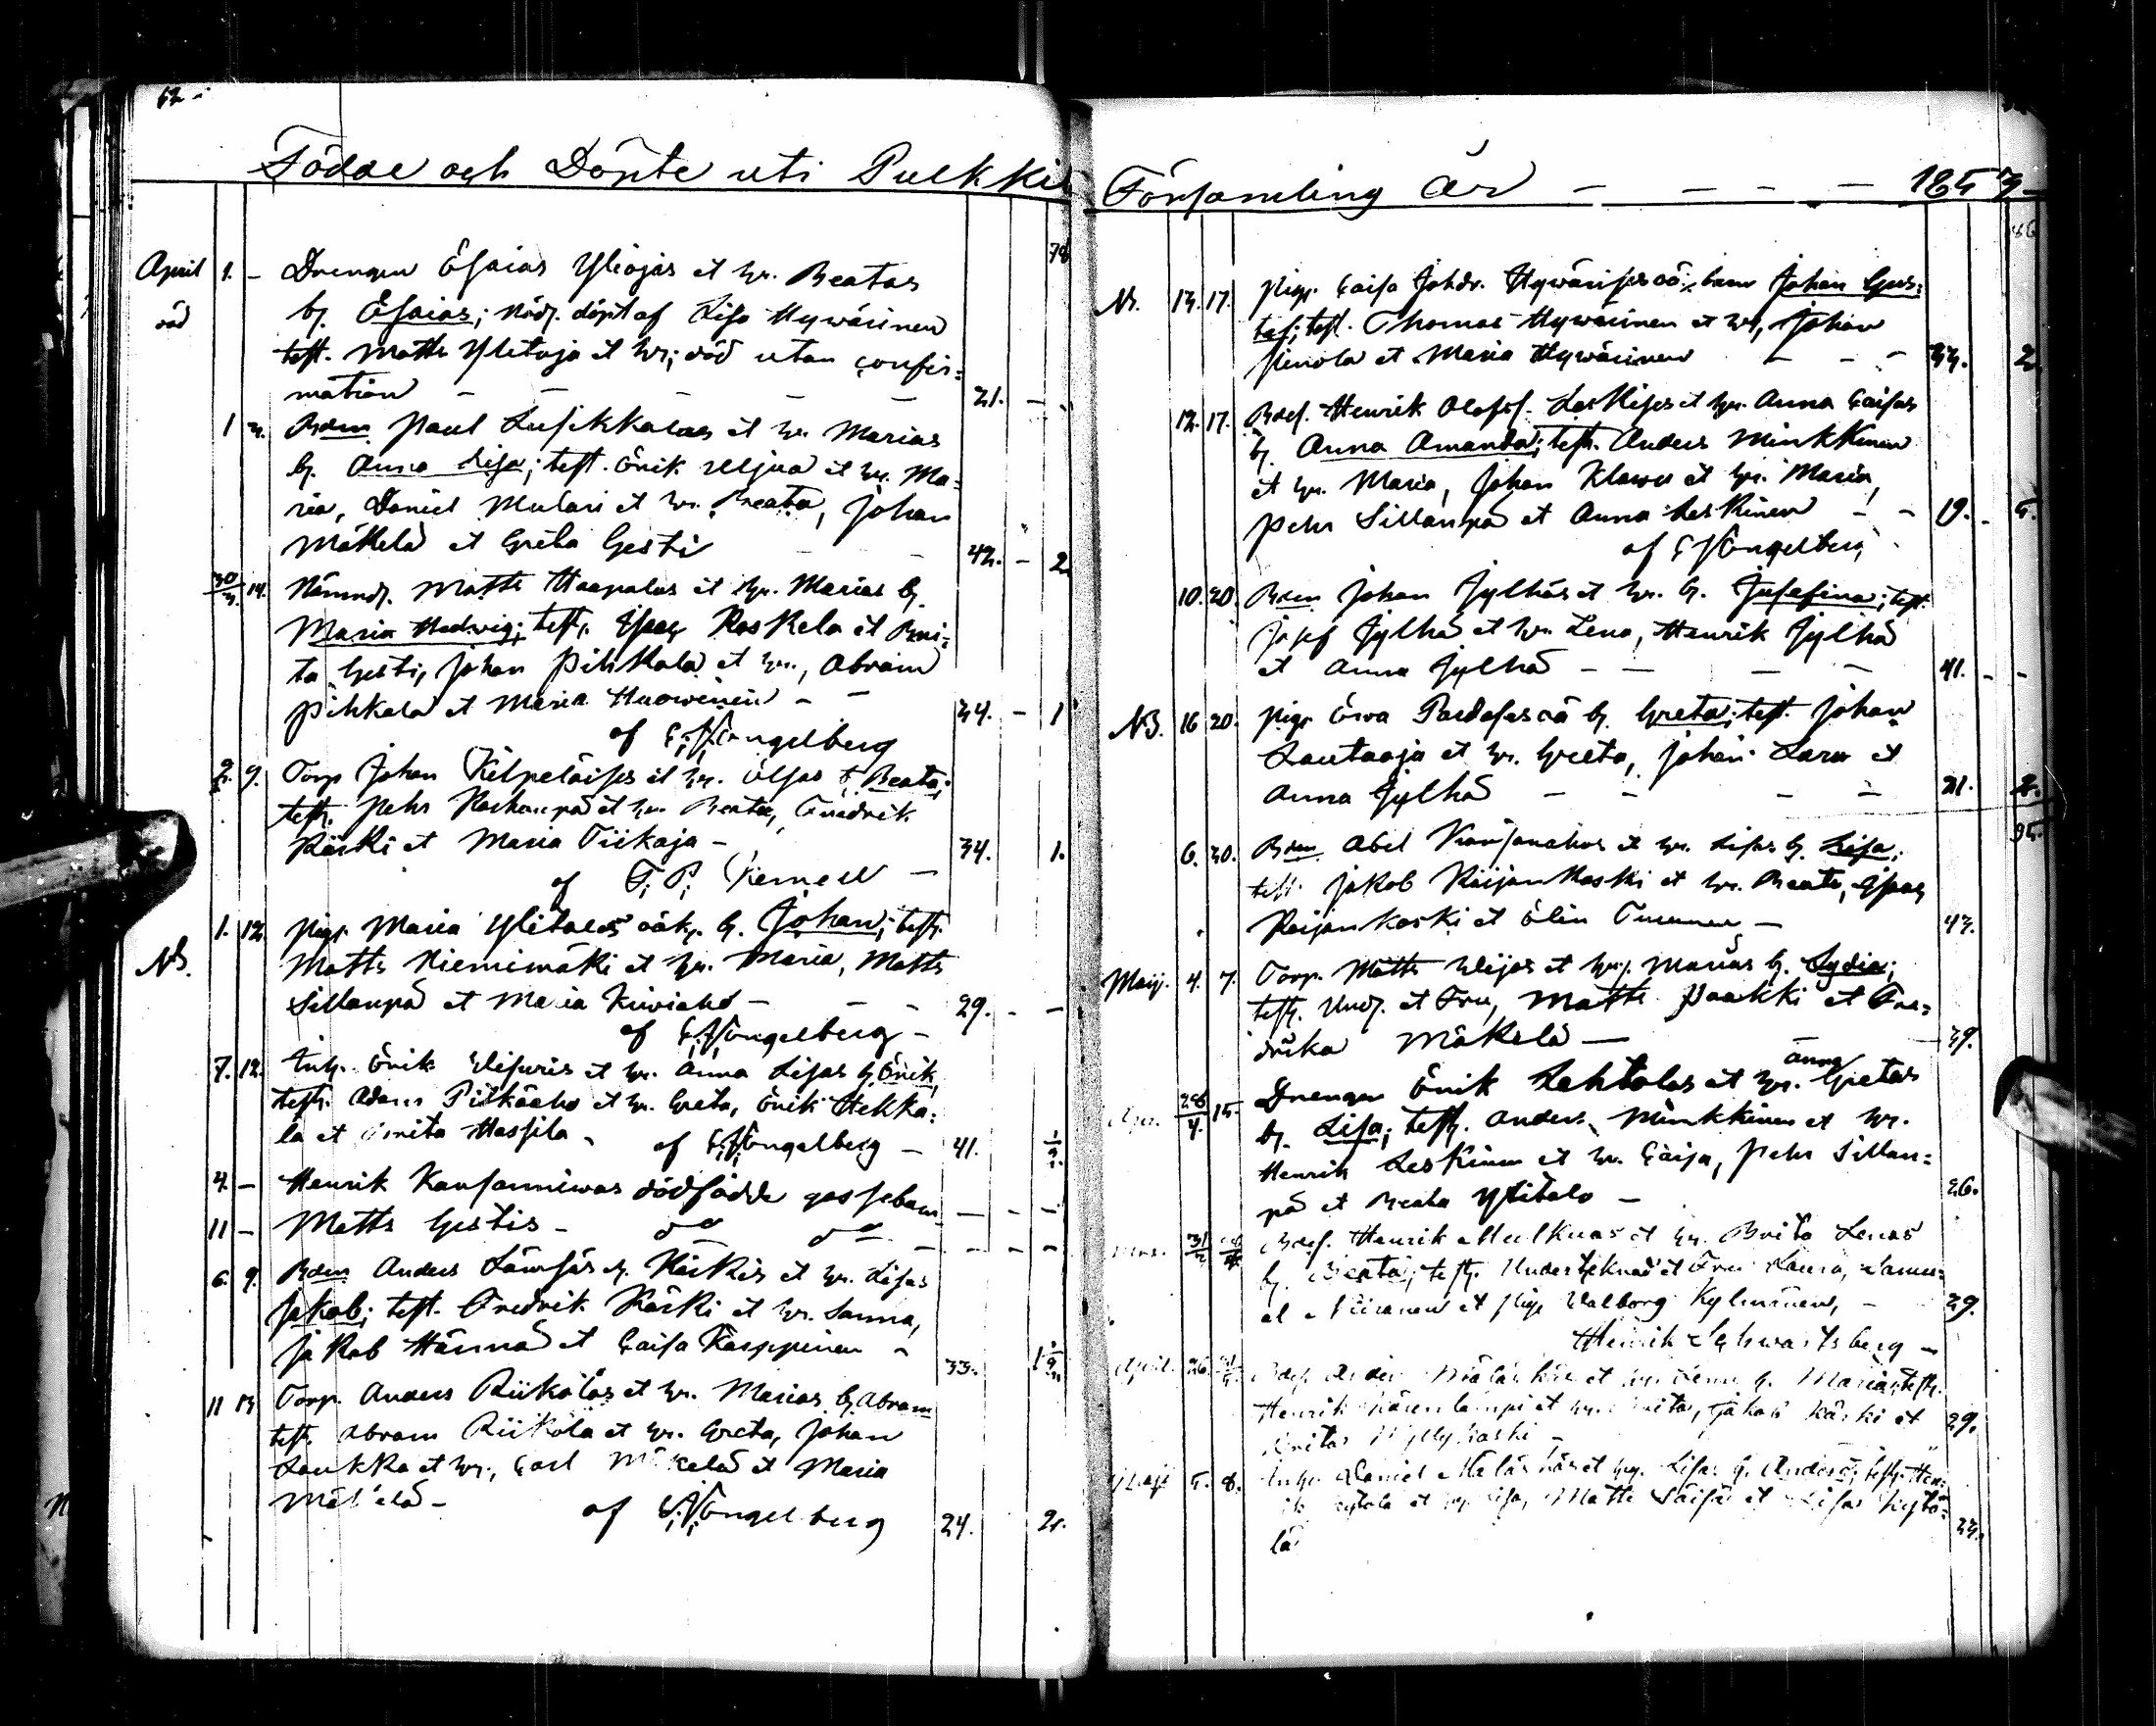 62
Födde och Döpte uti Pulkkil
78
April 1. - Drengen Esaias Yliojas et hr. Beatas
död b. Esaias; nöd. döpt af Lisa Hywärinen
test. Matts Ylitojä et hr; död utan confir=
mation - - - - 21. -
1 3. Bden Paul Lusikkalas et hr. Marias
b. Anna Lisa; test. Erik Uljua et hr. Ma=
ria, Daniel Mulari et hr. Beata, Johan
Mäkelä et Greta Gesti - - 42. - 2
30/3. 14. Nämnd. Matts Haapalas et hr. Marias b.
Maria Hedvig; test. Isaac Koskela et Bri=
ta Gesti, Johan Pihkala et hr., Abram
Pihkala et Maria Huowinen - - 34. - 1
af C. N. Engelberg
2. 9. Torp Johan Kilpeläises et hr. Elsas b. Beata;
test. Pehr Karhunpä et hr. Beata, Fredrik
Käski et Maria Tiikaja - 34. 1.
af F. P. Kemell -
1. 12. Pig. Maria Ylitalos oäk. b. Johan; test.
NB. Matts Niemimäki et hr. Maria, Matts
Sillanpä et Maria Kiviaho - - - 29. - -
af C. N. Engelberg -
7. 12. Inh. Erik Visuris et hr. Anna Lisas b. Erik,
test. Adam Pitkäaho et hr. Greta, Erik Hekka=
la et Brita Hassila - af C. N. Engelberg - 41. 1/2.
4. - Henrik Kansanniwas dödfödde gossebarn - - -
11 - Matts Gestis - do do - - - -
6. 9. Bden Anders Lämsäs l. Käskis et hr. Lisas
Jakob; test. Fredrik Käski et hr. Sanna,
Jakob Hännä et Caisa Kasppinen - 33. 1 1/2
11 13 Torp. Anders Riikolas et hr. Marias b. Abram
test. Abram Riikola et hr. Greta, Johan
Laukka et hr., Carl Mäkelä et Maria
Mäkelä - af C. N. Engelberg 24. 2.
Församling År - - - - 1857 -
86
NB. 13. 17. Pig. Caisa Johdr. Hywärises oä. barn Johan Gus=
taf; test. Thomas Hywärinen et hr, Johan
Pienola et Maria Hywärinen - - - 33. 2
12. 17. Bdes. Henrik Olofss. Leskises et hr. Anna Caisas
b. Anna Amanda; test. Anders Minkkinen
et hr. Maria, Johan Klawu et hr. Maria,
Pehr Sillanpä et Anna Leskinen - - 19. - 5.
af C N Engelberg -
10. 20. Bden Johan Jylhäs et hr. b. Josefina; test.
Josef Jylhä et hr. Lena, Henrik Jylhä
et Anna Jylhä - - - - 41. - -
NB. 16 20. Pig. Ewa Pardases oä b. Greta; test. Johan
Lautaoja et hr. Greta, Johan Laru et
Anna Jylhä - - - - 21. 2.
95.
6. 30. Bden Abel Kansanahos et hr. Lisas b. Lisa;
test. Jakob Räijänkoski et hr. Beata, Isaac
Raijankoski et Elin Turunen - 43.
Maij. 4. 7. Torp. Matts Weijos et hr. Marias b. Lydia;
test. Und. et Fru, Matts Paakki et Fre=
drika Mäkelä - - 39.
Apr. 28/4. 15. Drengen Erik Lehtolas et hr. Anna Gretas
b. Lisa; test. Anders Minkkinen et hr.
Henrik Leskinen et hr. Caisa, Pehr Sillan=
pä et Beata Ylitalo - 26.
Mars. 31/3 Bdes. Henrik Mulkuas et hr. Brita Lenas
b. Beata; test. Undertecknad et Fru Laura, Samu=
el Niiranen et Pig. Walborg Kylmänen, - 29.
Henrik Schwartsberg -
April. 26. Bdes. Anders Mäläskäs et hr. Lenas b. Maria; test.
Henrik et hr. Brita, Jakob Käski et 29.
Brita Myllykoski -
Maji 5. 8. Inh. Daniel Mäläskäs et hr. Lisas b. Anders; test. Hen=
rik Kytölä et hr. Lisa, Matts Säisä et Lisa Kytö=
lä 33.